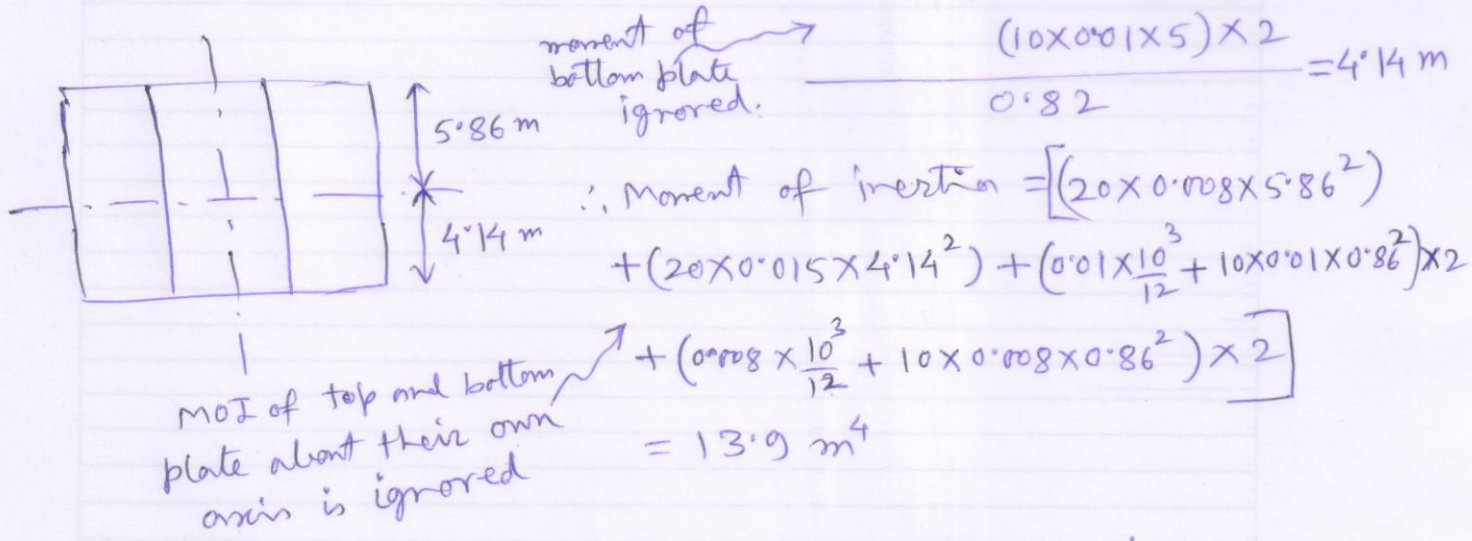 moment of
bottom plate
ignored.
(10×0.01×5)×2
0.82
=4.14 m
5.86 m
4.14 m
∴ Moment of inertia =[(20×0.008×5.86²)
+(20×0.015×4.14²)+(0.01×10³/12+10×0.01×0.86²)×2
+(0.008×10³/12+10×0.008×0.86²)×2]
= 13.9 m⁴
MOI of top and bottom
plate about their own
axis is ignored